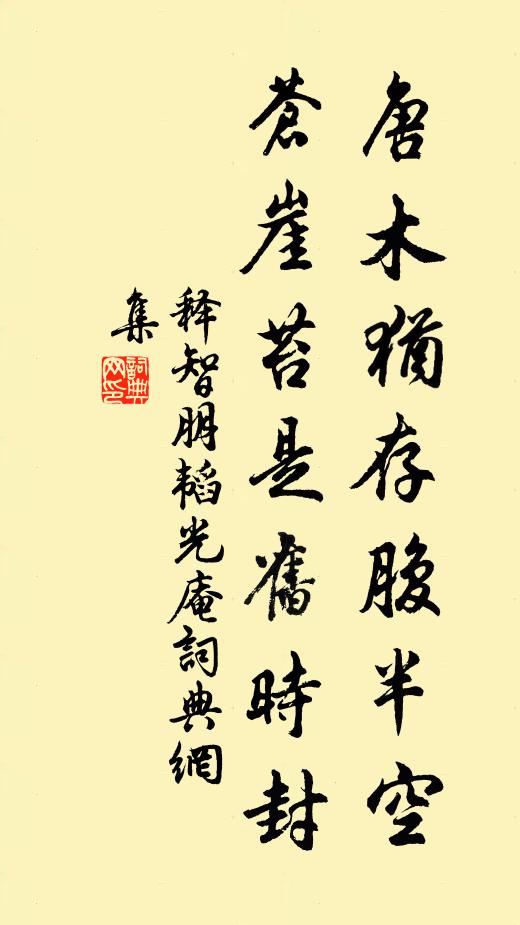 唐木猶存腹半空
蒼崖苔是舊時封
释智朋韬光庵詞典網
集
詞典网印